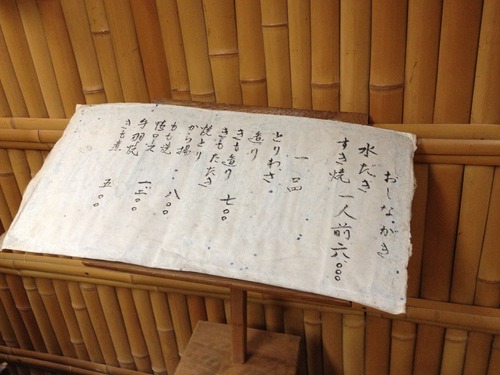 おしながき
水だき
すき焼 一人前 六、〇〇〇
一品
とりわさ
造り
きも造り 七〇〇
きもたたき
焼とり
から揚 八〇〇
もも焼
手羽焼
きも煮 五〇〇